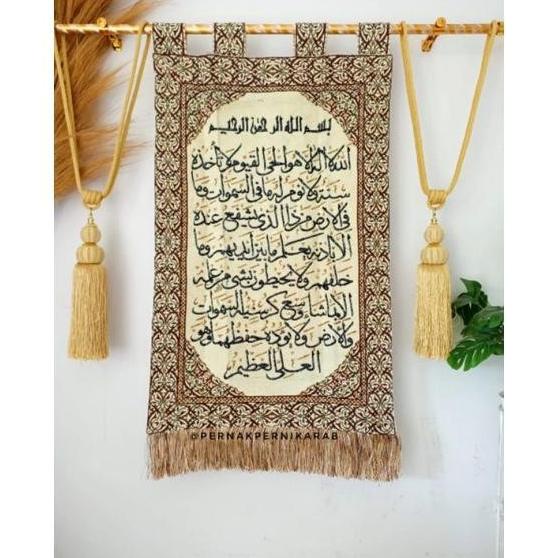 بسم الله الرحمن الرحيم
الله لا اله الا هو الحي القيوم لا تأخذه
سنة ولا نوم له ما في السموات وما
في الارض من ذا الذي يشفع عنده
الا باذنه يعلم ما بين ايديهم وما
خلفهم ولا يحيطون بشيء من علمه
الا بما شاء وسع كرسيه السموات
والارض ولا يؤده حفظهما وهو
العلي العظيم
@PERNAKPERNIKARAB